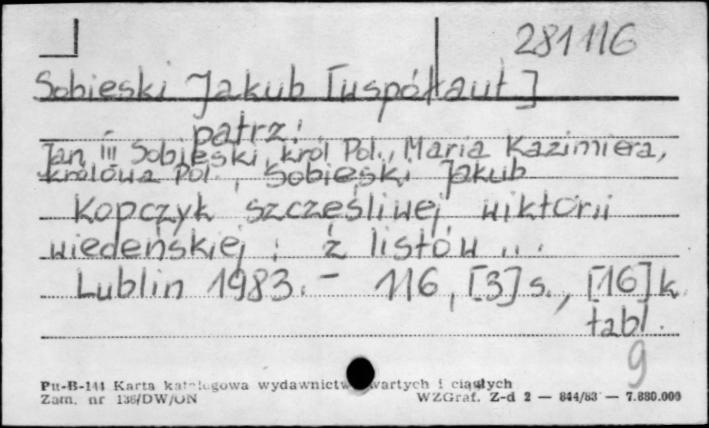 281116
Sobieski Jakub [współaut.]
patrz:
Jan III Sobieski, król Pol., Maria Kazimiera,
królowa Pol., Sobieski Jakub
Kopczyk szczęśliwej wiktorii
wiedeńskiej : z listów ...
Lublin 1983. - 116, [3] s., [16] k.
tabl.
9
Pu-B-144 Karta katalogowa wydawnictw zwartych i ciągłych
Zam. nr 136/DW/ON WZGraf. Z-d 2 — 844/83 — 7.880.000